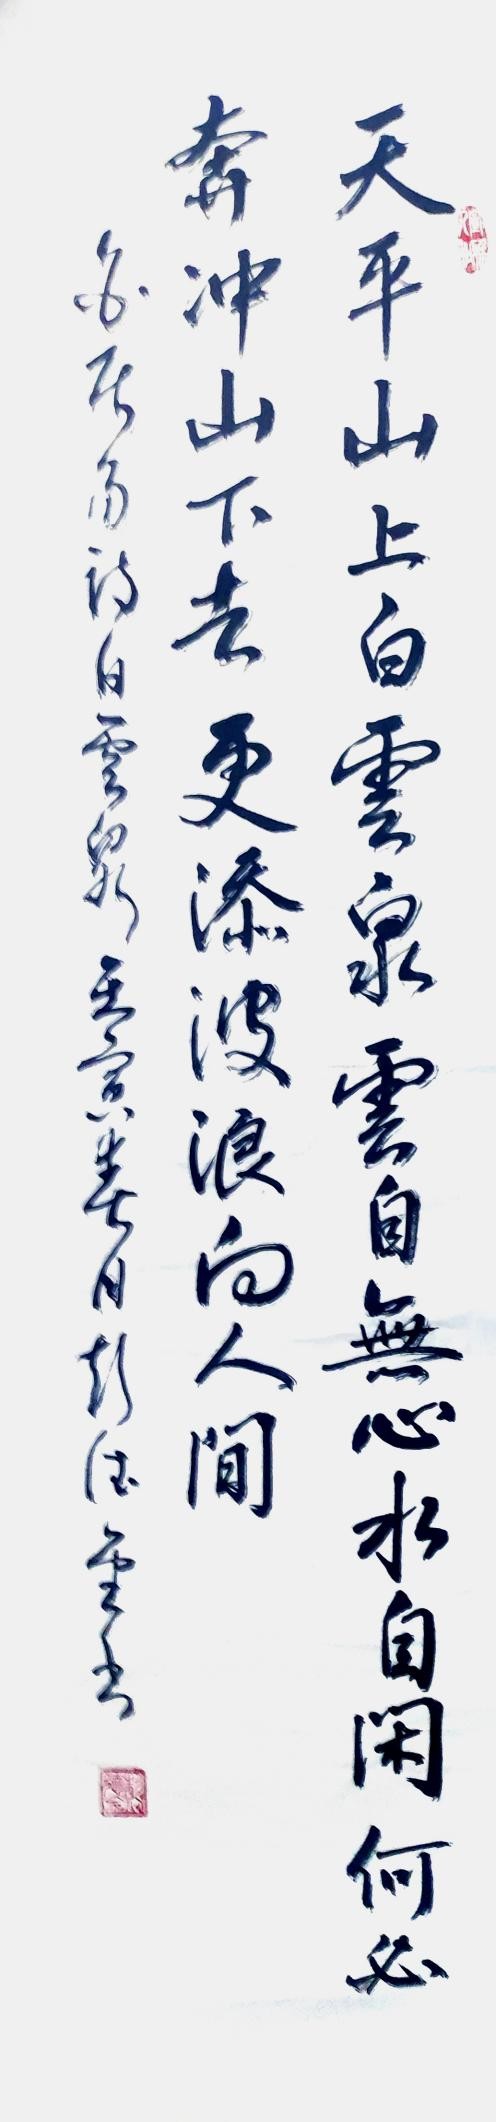 天平山上白雲泉雲自無心水自閑何必
奔冲山下去更添波浪向人間
白居易詩白雲泉壬寅春月彭法堂书